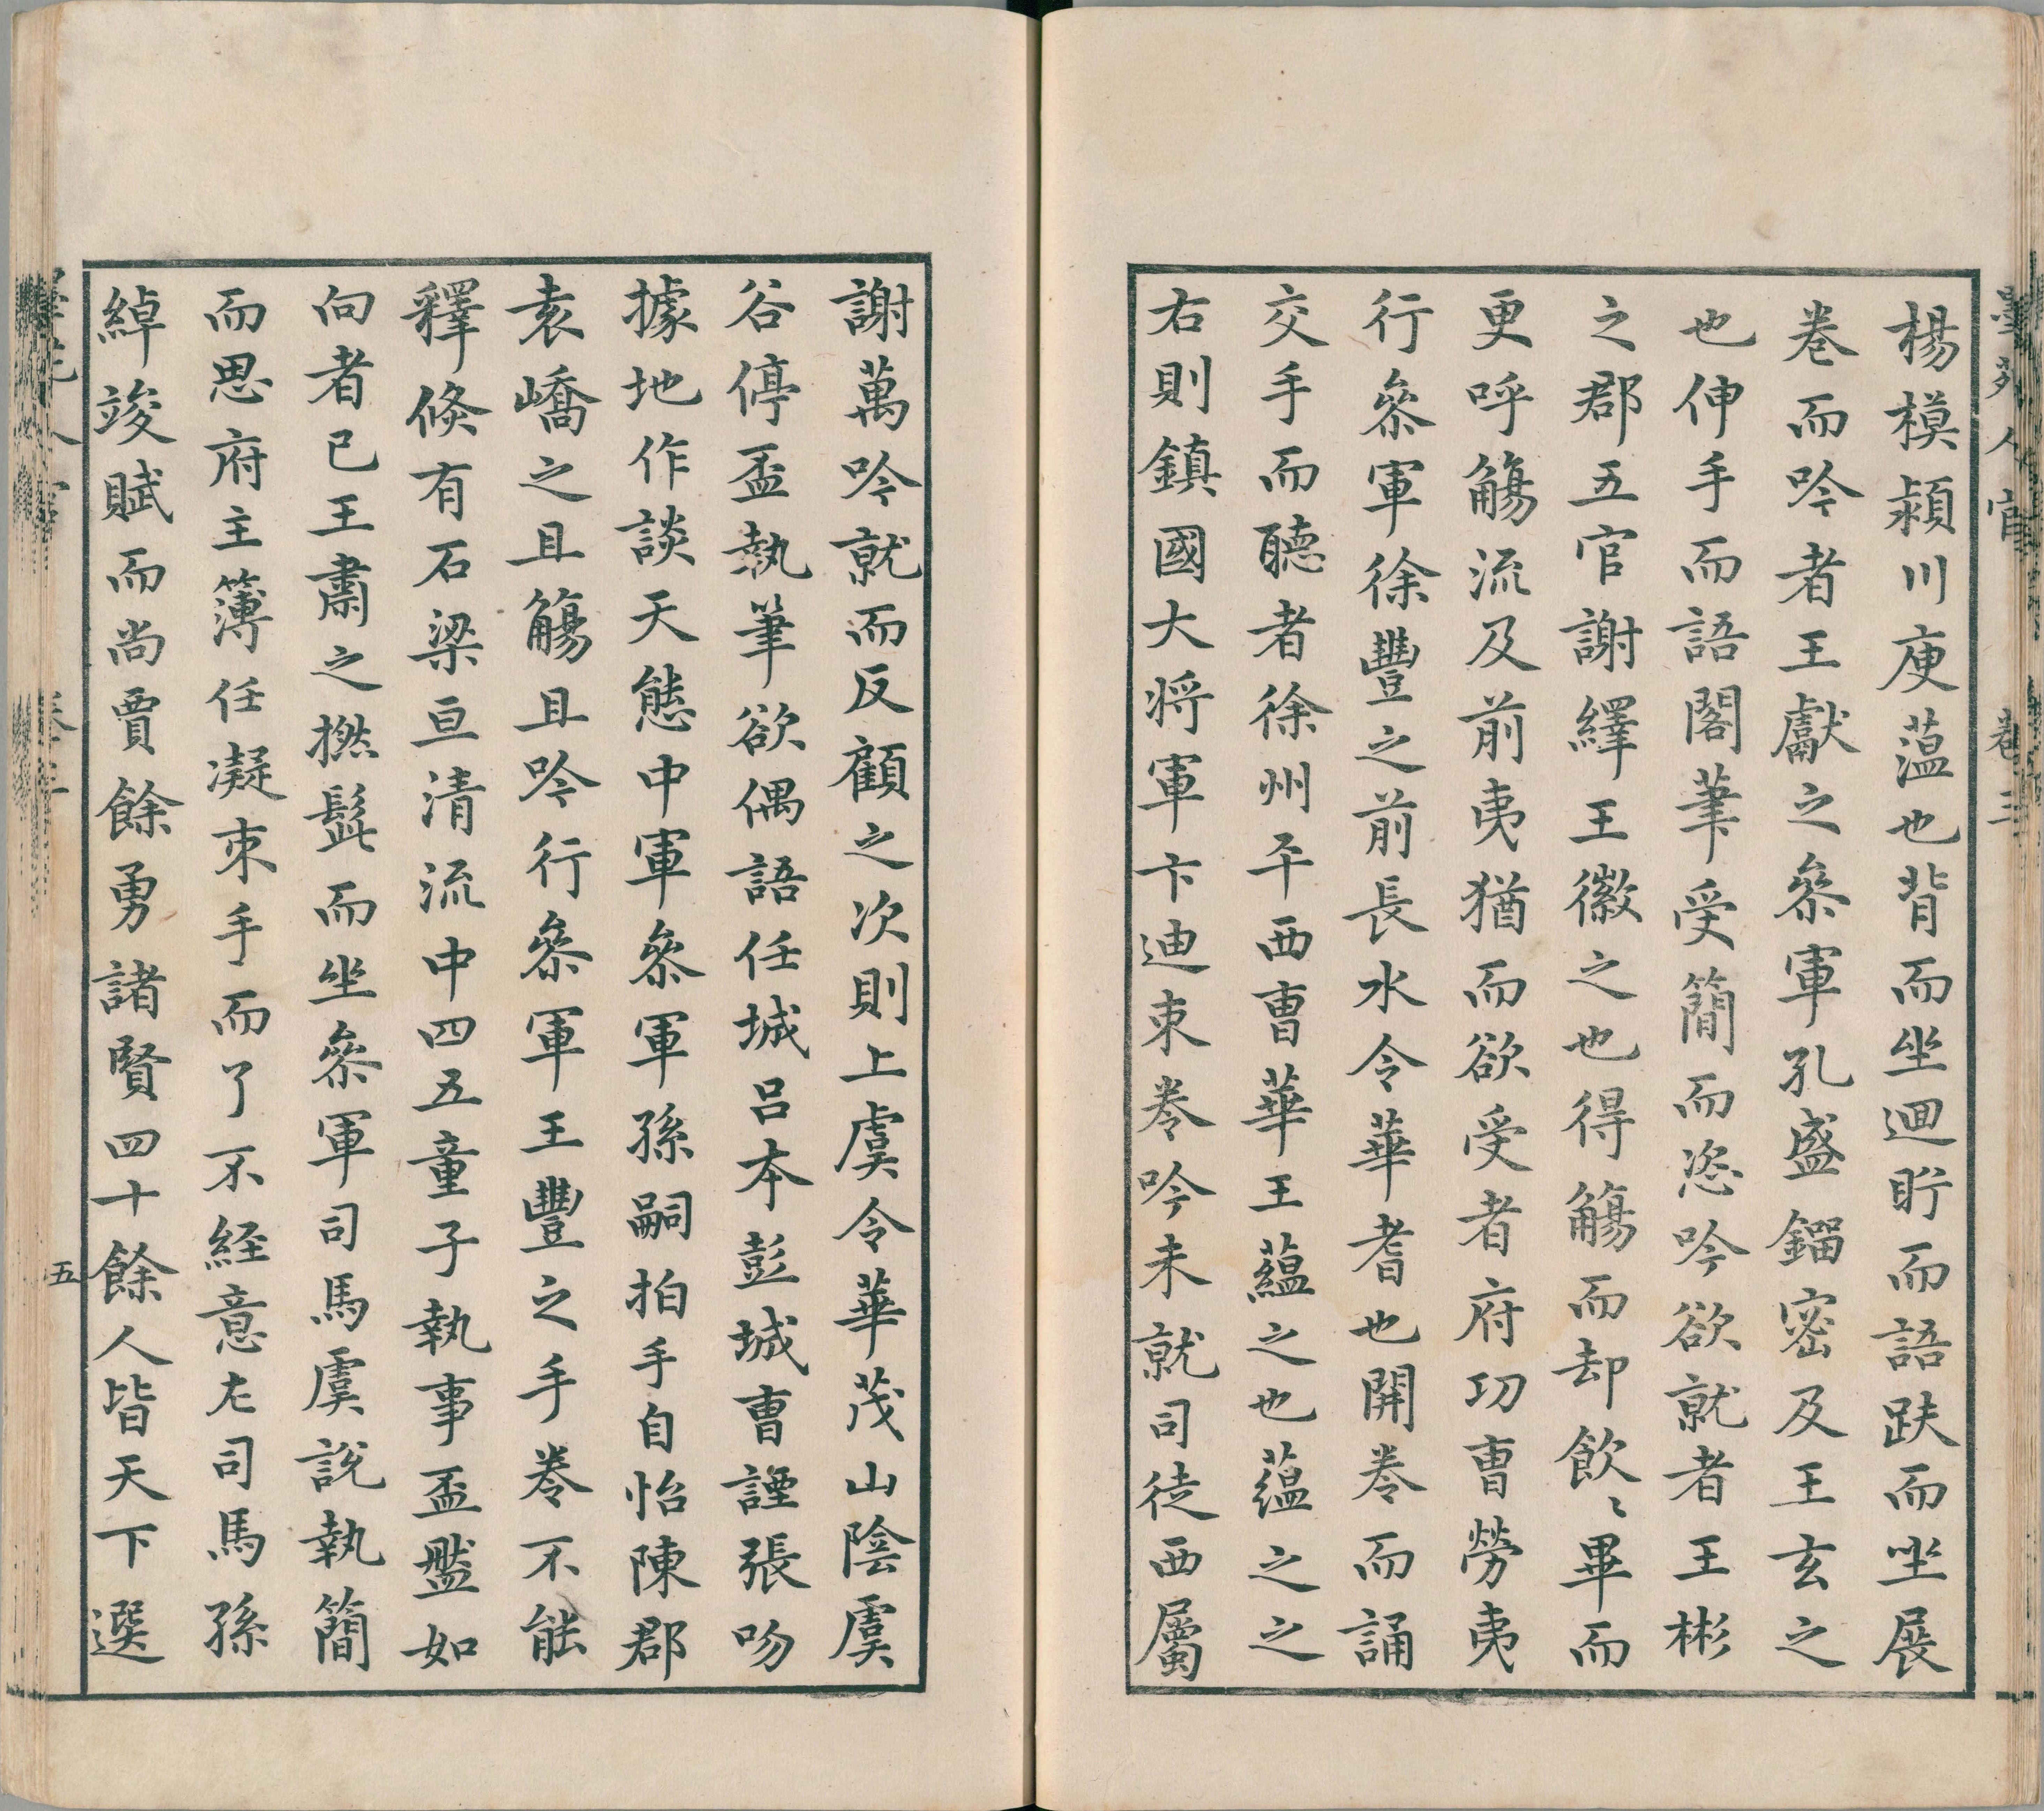 楊模潁川庾薀也背而坐迴盻而語趺而坐展
卷而吟者王獻之叅軍孔盛鎦宻及王玄之
也伸手而語閣筆受簡而恣吟欲就者王彬
之郡五官謝繹王徽之也得觴而却飲〻畢而
更呼觴流及前夷猶而欲受者府功曹勞夷
行叅軍徐豐之前長水令華耆也開卷而誦
交手而聽者徐州平西曹華王蘊之也蕴之之
右則鎮國大將軍卞迪束卷吟未就司徒西屬
謝萬吟就而反顧之次則上虞令華茂山陰虞
谷停盃執筆欲偶語任城呂本彭城曹諲張吻
據地作談天態中軍叅軍孫嗣拍手自怡陳郡
袁嶠之且觴且吟行叅軍王豐之手卷不能
釋倏有石梁亘清流中四五童子執事盃盤如
向者已王肅之撚髭而坐叅軍司馬虞說執簡
而思府主簿任凝束手而了不経意左司馬孫
綽竣賦而尚賈餘勇諸賢四十餘人皆天下選
五